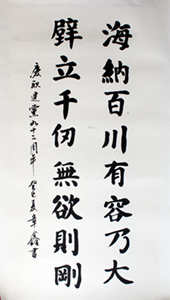 海納百川有容乃大
壁立千仞無欲則剛
慶祝建黨九十二周年 癸巳夏 章鑫書